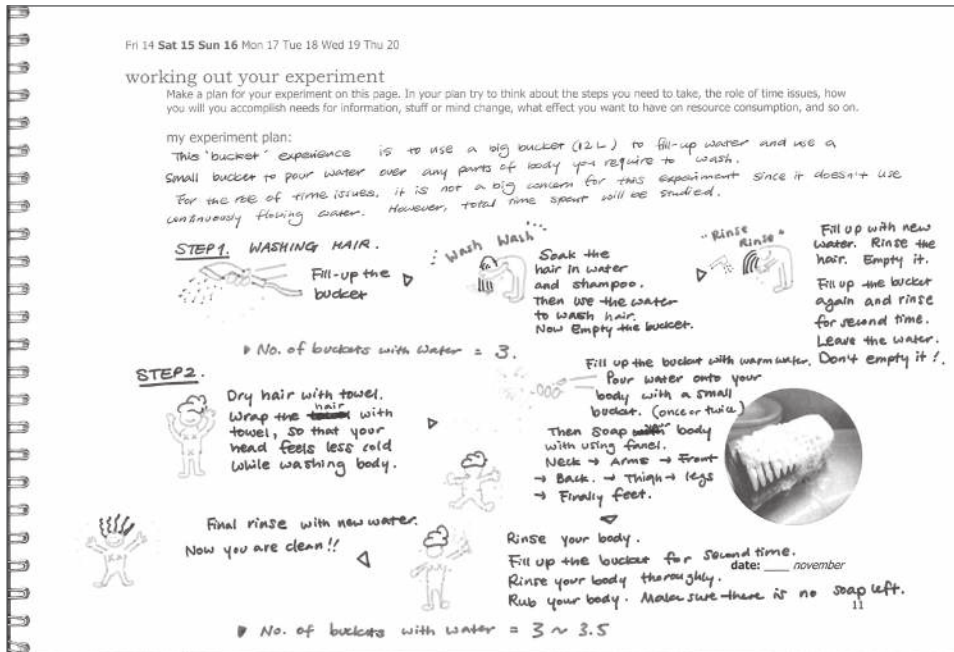 Fri 14 Sat 15 Sun 16 Mon 17 Tue 18 Wed 19 Thu 20
working out your experiment
Make a plan for your experiment on this page. In your plan try to think about the steps you need to take, the role of time issues, how
you will you accomplish needs for information, stuff or mind change, what effect you want to have on resource consumption, and so on.
my experiment plan:
This 'bucket' experience is to use a big bucket (12L) to fill-up water and use a
small bucket to pour water over any parts of body you require to wash.
For the role of time issues, it is not a big concern for this experiment since it doesn't use
continuously flowing water. However, total time spent will be studied.
STEP1. WASHING HAIR.
Fill-up the
bucket
Wash Wash
Soak the
hair in water
and shampoo.
Then use the water
to wash hair.
Now Empty the bucket.
"Rinse
Rinse"
Fill up with new
water. Rinse the
hair. Empty it.
Fill up the bucket
again and rinse
for second time.
Leave the water.
Don't empty it!
No. of buckets with water = 3.
STEP2.
Dry hair with towel.
Wrap the hair with
towel, so that your
head feels less cold
while washing body.
Fill up the bucket with warm water.
Pour water onto your
body with a small
bucket. (once or twice)
Then soap body
with using fanel.
Neck → Arms → Front
→ Back. → Thigh → legs
→ Finally feet.
Rinse your body.
Fill up the bucket for second time.
Rinse your body thoroughly.
Rub your body. Make sure there is no soap left.
Final rinse with new water.
Now you are clean!!
date: ____ november
11
No. of buckets with water = 3 ~ 3.5